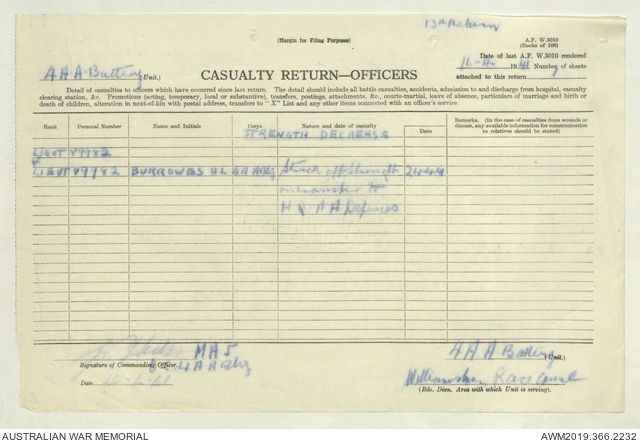 13th Return
(Margin for Filing Purposes)
A.F. W.3010
(Books of 100)
Date of last A.F. W.3010 rendered
16-4- 1941 Number of sheets
attached to this return
4 A A Battery (Unit.)
CASUALTY RETURN—OFFICERS
Detail of casualties to officers which have occurred since last return. The detail should include all battle casualties, accidents, admission to and discharge from hospital, casualty
clearing station, &c. Promotions (acting, temporary, local or substantive), transfers, postings, attachments, &c., courts-martial, leave of absence, particulars of marriage and birth or
death of children, alteration in next-of-kin with postal address, transfers to "X" List and any other items connected with an officer's service.
Rank Personal Number Name and Initials Corps Nature and date of casualty Date Remarks. (In the case of casualties from wounds or disease, any available information for communication to relatives should be stated)
STRENGTH DECREASE
LIEUT V9982
LIEUT V9982 BURROWES H L 4 A A Bty Struck off Strength 24-4-41
on transfer to
H Q A A Defences
MAJ
Signature of Commanding Officer.
O C 4 A A Bty
Date
4 A A Battery (Unit.)
Williamstown Race Course
(Bde. Divn. Area with which Unit is serving).
AUSTRALIAN WAR MEMORIAL
AWM2019.366.2232